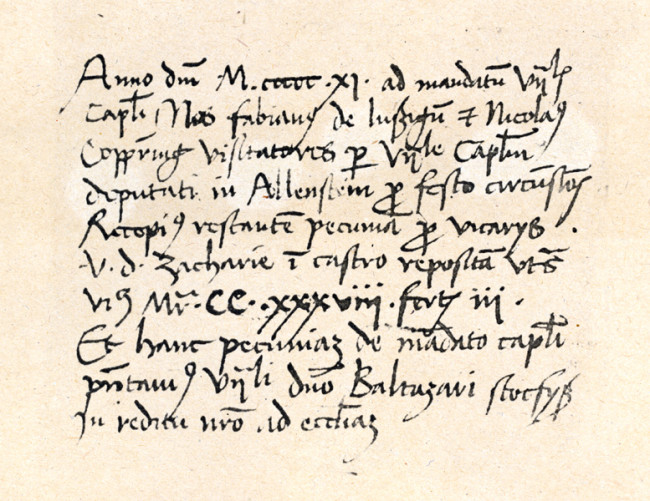 Anno dm̄ M.ccccc.xi. ad mandatū Vn̄lis
Capl̄i Nos fabianus de lusigen̄ & Nicolaus
Coppr̄nig visitatores ꝑ Vn̄le Capl̄m
deputati in Allenstein ꝓ festo circūs
Recepimus restantē pecuniā ꝓ vicarys
V. d. Zacharie ī castro repositā
Mr̄. CC. .xxxviii. fert iii.
Et hanc pecuniaz de mādato capl̄i
pn̄tauimus Vn̄li dn̄o Baltazari stocfysch
In reditu nr̄o ad eccl̄iaz